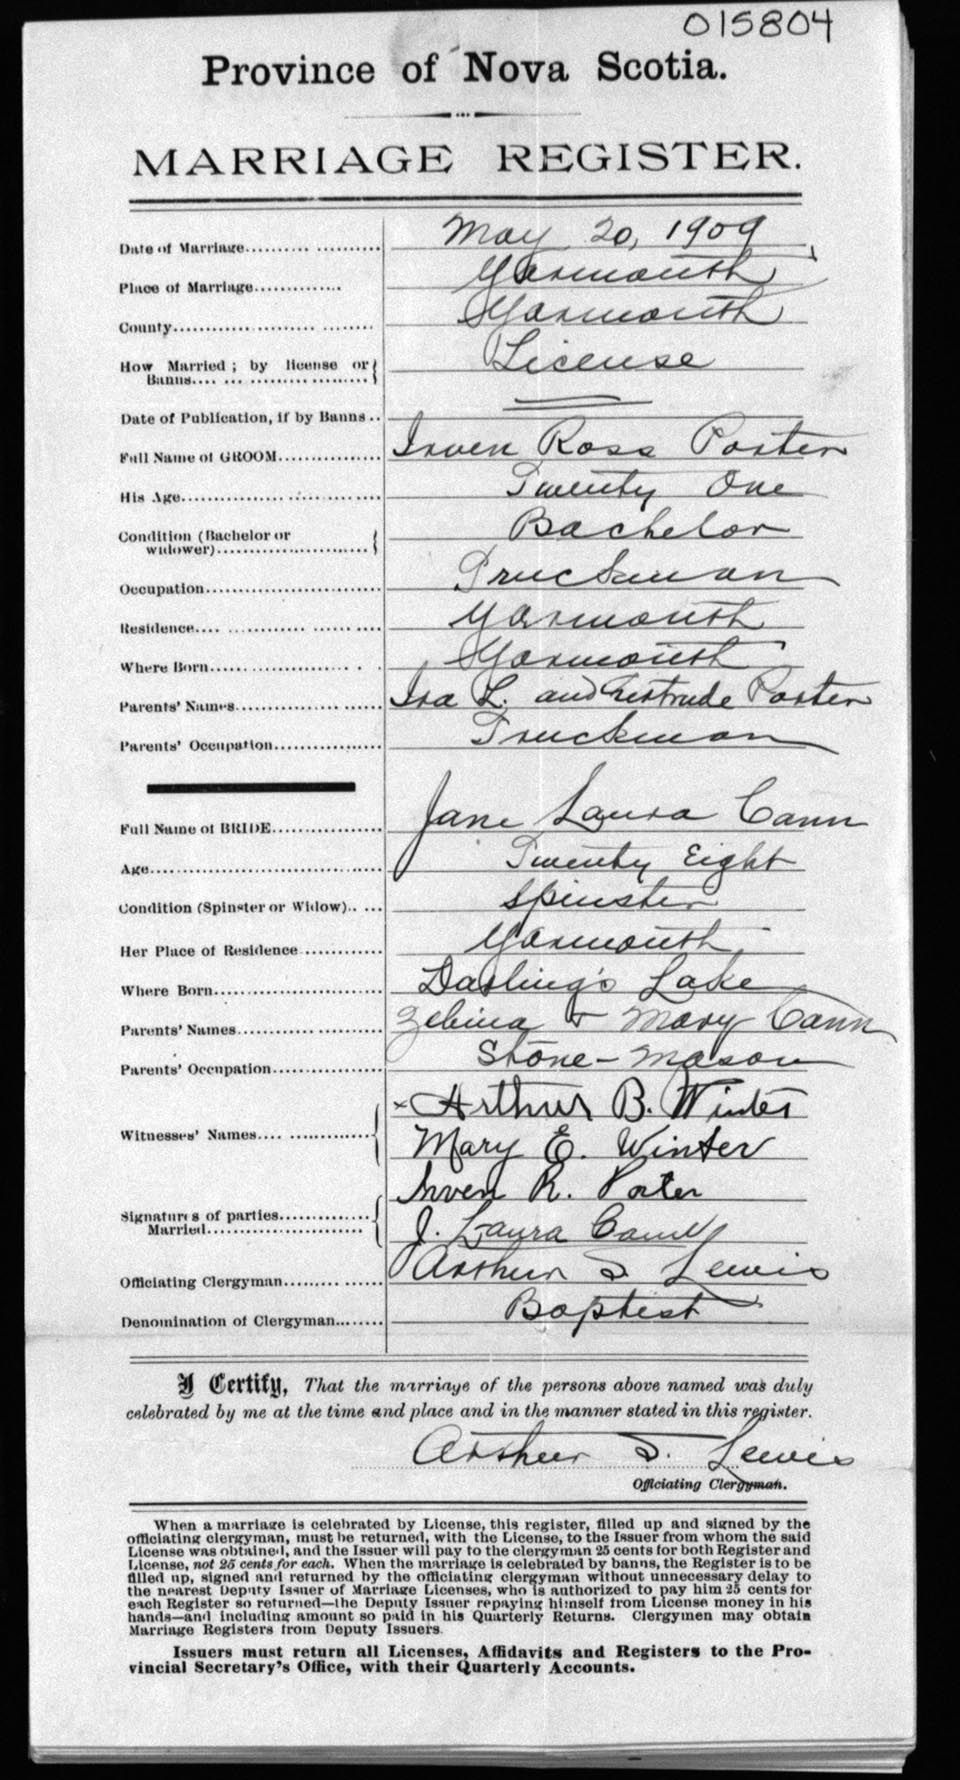 015804
Province of Nova Scotia.
MARRIAGE REGISTER.
Date of Marriage.......... .......... May 20, 1909
Place of Marriage............. Yarmouth
County............ ........ ........ Yarmouth
How Married ; by license or License
Banns.... ... .......... ..........
Date of Publication, if by Banns ..
Full Name of GROOM................ Irven Ross Porter
His Age.................... .... ..... Twenty One
Condition (Bachelor or Bachelor
widower).......................
Occupation........................... Truckman
Residence.... ............ ...... .... Yarmouth
Where Born................... . . Yarmouth
Parents' Names................ ...... Ira L. and Gertrude Porter
Parents' Occupation................. Truckman
Full Name of BRIDE................. Jane Laura Cann
Age.................................... Twenty Eight
Condition (Spinster or Widow).. ... Spinster
Her Place of Residence ............ Yarmouth
Where Born........................ Darling's Lake
Parents' Names...................... Zebina & Mary Cann
Parents' Occupation................. Stone-Mason
x Arthur B. Winter
Witnesses' Names.... .............
Mary E. Winter
Irven R. Porter
Signatures of parties..............
Married...................... J. Laura Cann
Officiating Clergyman......... ..... Arthur S. Lewis
Denomination of Clergyman........ Baptist
I Certify, That the marriage of the persons above named was duly
celebrated by me at the time and place and in the manner stated in this register.
Arthur S. Lewis
Officiating Clergyman.
When a marriage is celebrated by License, this register, filled up and signed by the
officiating clergyman, must be returned, with the License, to the Issuer from whom the said
License was obtained, and the Issuer will pay to the clergyman 25 cents for both Register and
License, not 25 cents for each. When the marriage is celebrated by banns, the Register is to be
filled up, signed and returned by the officiating clergyman without unnecessary delay to
the nearest Deputy Issuer of Marriage Licenses, who is authorized to pay him 25 cents for
each Register so returned—the Deputy Issuer repaying himself from License money in his
hands—and including amount so paid in his Quarterly Returns. Clergymen may obtain
Marriage Registers from Deputy Issuers.
Issuers must return all Licenses, Affidavits and Registers to the Pro-
vincial Secretary's Office, with their Quarterly Accounts.